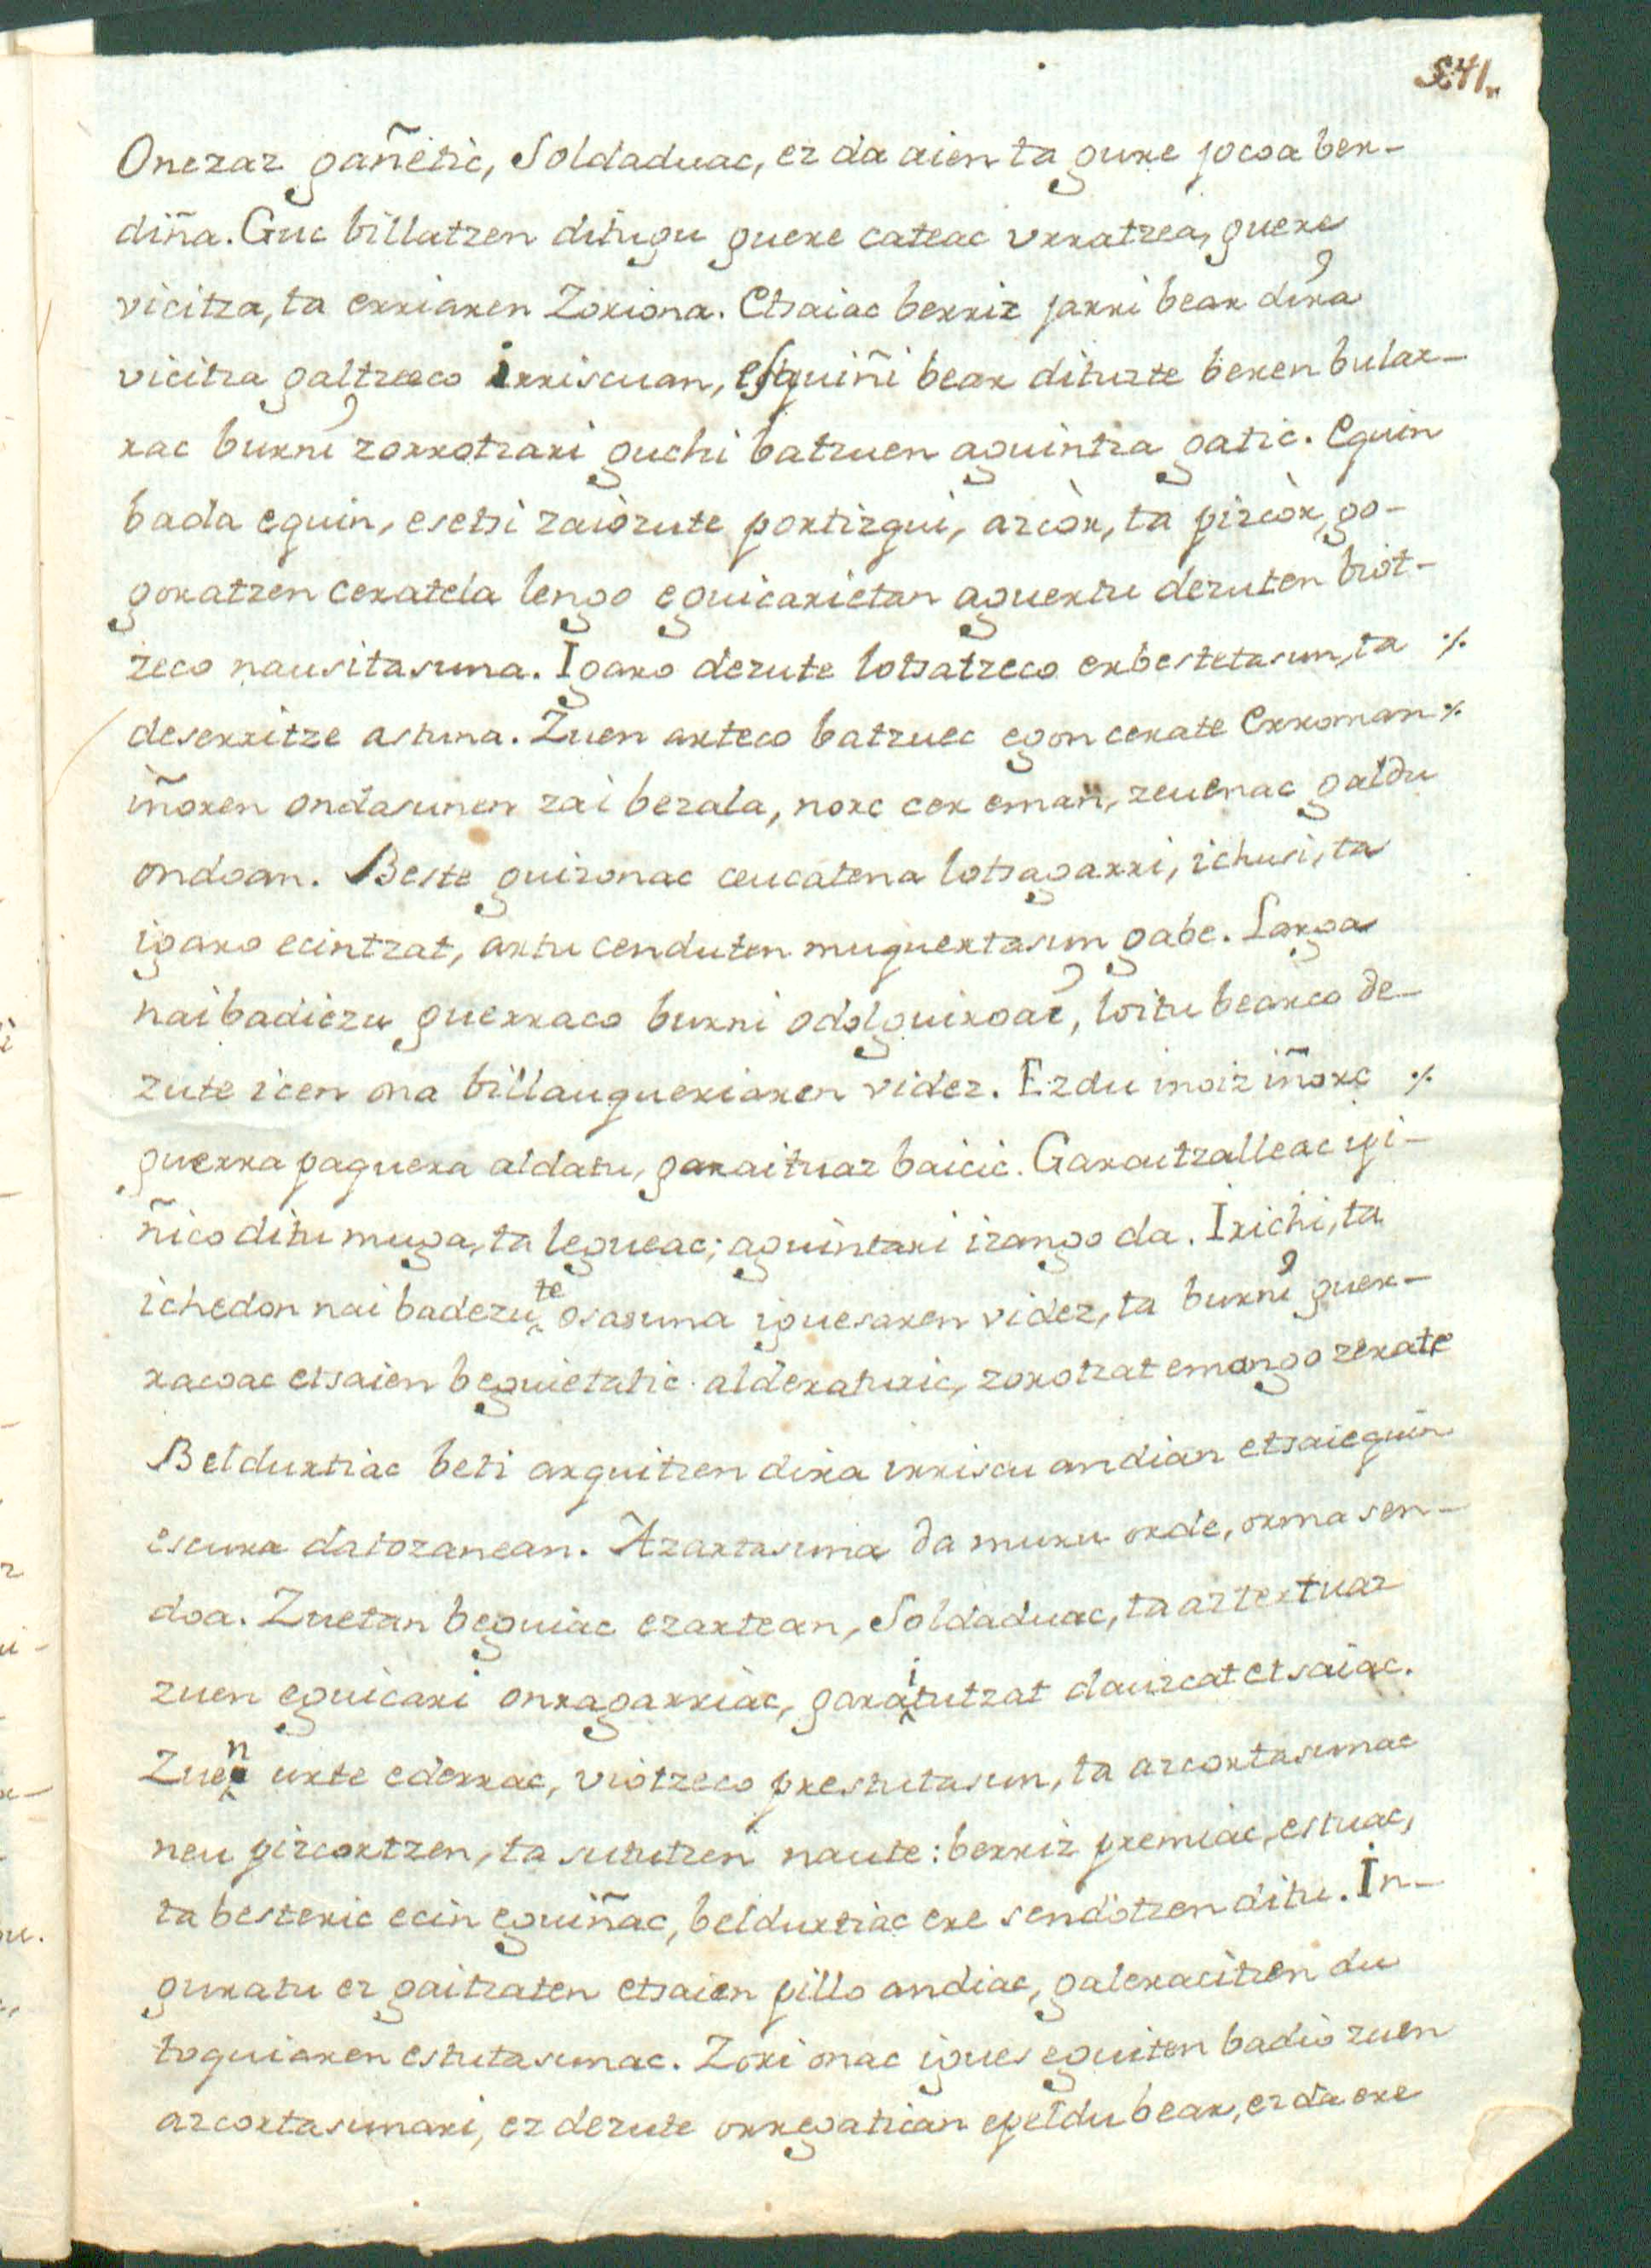 541.
Onezaz gañetic, Soldaduac, ez da aien ta gure jocoa ber-
diña. Guc billatzen ditugu guere cateac urratzea, guere
vicitza, ta erriaren Zoriona. Etsaiac berriz jarri bear dira
vicitza galtzeco irriscuan, esquiñi bear dituzte beren bular-
rac burni zorrotzari guchi batzuen aguintza gatic. Eguin
bada eguin, esetsi zaiozute portizqui, azcòr, ta pizcòr, go-
goratzen ceratela lengo eguicarietan aguertu dezuten biot-
zeco nausitasuna. Igaro dezute lotsatzeco erbestetasun, ta %
deserritze astuna. Zuen arteco batzuec egon cerate Erroman %
iñoren ondasunen zai bezala, norc cer eman, zeuenac galdu
ondoan. Beste guizonac ceucatena lotsagarri, ichusi, ta
igaro ecintzat, artu cenduten muquertasun gabe. Larga
nai badiezu guerraco burni odolguiroac, loitu bearco de-
zute icen ona billauqueriaren videz. Ez du inoiz iñorc %
guerra paquera aldatu, garaituaz baicic. Garaitzalleac ipi-
ñico ditu muga, ta legueac; aguintari izango da. Irichi, ta
ichedon nai badezute osasuna iguesaren videz, ta burni guer-
racoac etsaien beguietatic alderaturic, zorotzat emango zerate
Beldurtiac beti arquitzen dira irriscu andian etsaiequin
escura datozanean. Azartasuna da muru orde, orma sen-
doa. Zuetan beguiac ezartean, Soldaduac, ta aztertuaz
zuen eguicari onragarriac, garaitutzat dauzcat etsaiac.
Zuen urte ederrac, viotzeco prestutasun, ta azcortasunac
neu pizcortzen, ta sututzen naute: berriz premiac, estuac,
ta besteric ecin eguiñac, beldurtiac ere sendotzen ditu. In-
guratu ez gaitzaten etsaien pillo andiac, galeracitzen du
toquiaren estutasunac. Zori onac igues eguiten badio zuen
azcortasunari, ez dezute orregatican epeldu bear, ez da ere